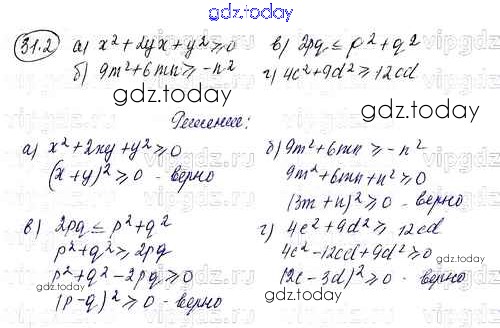 gdz.today
31.2 а) x²+2yx+y²≥0
б) 9m²+6mn≥-n²
в) 2pq≤p²+q²
г) 4c²+9d²≥12cd
gdz.today
gdz.today
Решение:
а) x²+2xy+y²≥0
(x+y)²≥0 - верно
б) 9m²+6mn≥-n²
9m²+6mn+n²≥0
(3m+n)²≥0 - верно
в) 2pq≤p²+q²
p²+q²≥2pq
p²+q²-2pq≥0
(p-q)²≥0 - верно
г) 4c²+9d²≥12cd
4c²-12cd+9d²≥0
(2c-3d)²≥0 - верно
gdz.today
gdz.today
vipgdz.ru